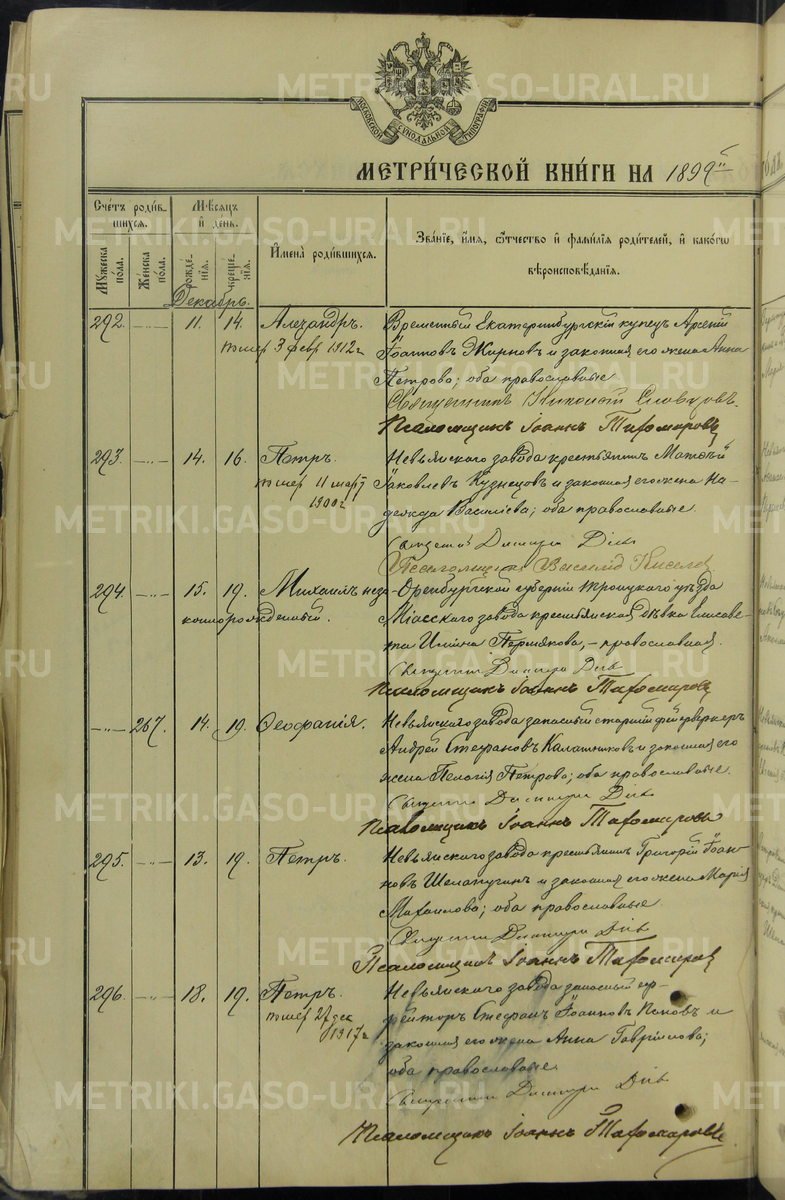 МОСКОВСКОЙ СѴНОДАЛЬНОЙ ТИПОГРАФІИ
МЕТРИ́ЧЕСКОЙ КНИ́ГИ НА 1899
Сче́тъ роди́в-
шихся.
Мѣ́сяцъ
и҆ де́нь.
И҆мена̀ роди́вшихся.
Зва́нїе, и҆́мя, ѻ҆́тчество и҆ фами́лїа роди́телей, и҆ како́гѡ
вѣроисповѣ́данїя.
Мꙋ́жеска
по́ла.
Же́нска
по́ла.
рожде́-
нїя.
креще́-
нїя.
Декабрь.
292. —„— 11. 14. Александръ.
померъ 3 февр 1912 г
Временный Екатеринбургскій купецъ Арсеній
Іоанновъ Жирновъ и законная его жена Анна
Петрова; оба православные
Священникъ Николай Словцовъ.
Псаломщикъ Іоаннъ Тихомировъ
293. —„— 14. 16. Петръ.
померъ 11 март
1900 г
Невьянскаго завода крестьянинъ Матѳѣй
Іаковлевъ Кузнецовъ и законная его жена На-
дежда Василіева; оба православные.
Священ Димитрій Дів
Псаломщикъ Василій Киселев
294. —„— 15. 19. Михаилъ неза-
коннорожденный.
Оренбургской губерніи Троицкаго уѣзда
Міасскаго завода крестьянская дѣвка Елисаве-
та Ильина Пермякова, – православная.
Священ Димитрій Дів
Псаломщикъ Іоаннъ Тихомировъ
—„— 267. 14. 19. Ѳеофанія.
Невьянскаго завода запасный старшій фейерверкеръ
Андрей Стефановъ Калашниковъ и законная его
жена Пелагія Петрова; оба православные.
Священ Димитрій Дів
Псаломщикъ Іоаннъ Тихомировъ
295. —„— 13. 19. Петръ.
Невьянскаго завода крестьянинъ Григорій Іоан-
новъ Шелапугинъ и законная его жена Марія
Михаилова; оба православные.
Священ Димитрій Дів
Псаломщикъ Іоаннъ Тихомиров
296. —„— 18. 19. Петръ.
померъ 27 дек
1917 г
Невьянскаго завода запасный еф-
рейторъ Стефанъ Іоанновъ Поповъ и
законная его жена Анна Гавріилова;
оба православные.
Священ Димитрій Дів
Псаломщикъ Іоаннъ Тихомировъ
METRIKI.GASO-URAL.RU